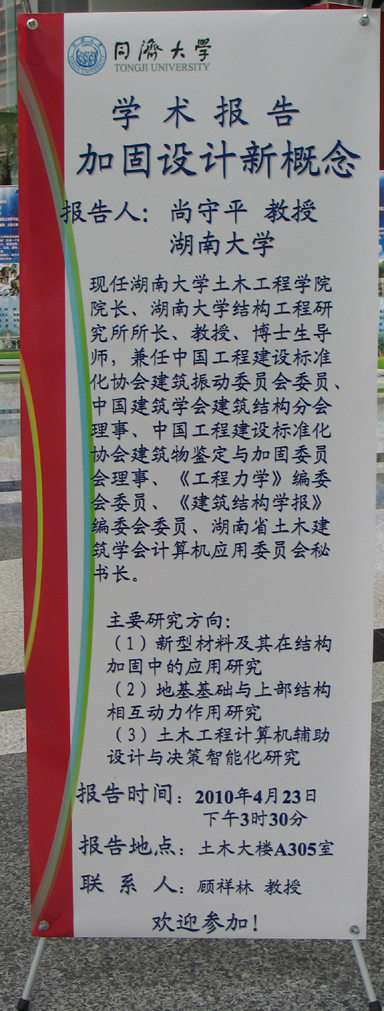 同濟大学
TONGJI UNIVERSITY
学术报告
加固设计新概念
报告人：尚守平 教授
湖南大学
现任湖南大学土木工程学院
院长、湖南大学结构工程研
究所所长、教授、博士生导
师，兼任中国工程建设标准
化协会建筑振动委员会委员、
中国建筑学会建筑结构分会
理事、中国工程建设标准化
协会建筑物鉴定与加固委员
会理事、《工程力学》编委
会委员、《建筑结构学报》
编委会委员、湖南省土木建
筑学会计算机应用委员会秘
书长。
主要研究方向：
（1）新型材料及其在结构
加固中的应用研究
（2）地基基础与上部结构
相互动力作用研究
（3）土木工程计算机辅助
设计与决策智能化研究
报告时间：2010年4月23日
下午3时30分
报告地点：土木大楼A305室
联 系 人：顾祥林 教授
欢迎参加！